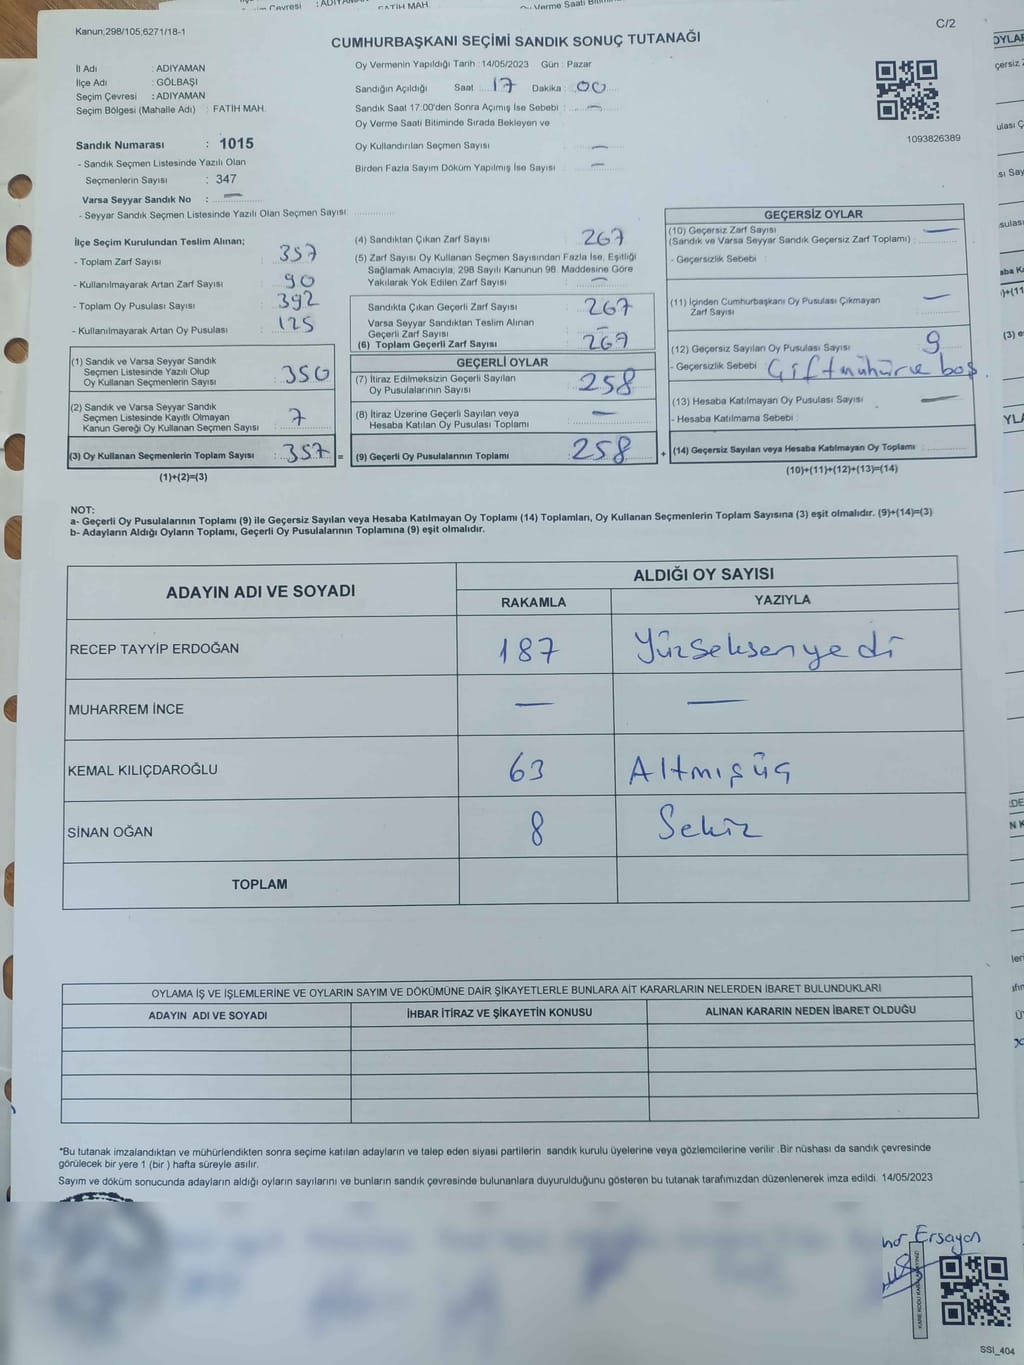 Kanun;298/105;6271/18-1
C/2
CUMHURBAŞKANI SEÇİMİ SANDIK SONUÇ TUTANAĞI
İl Adı : ADIYAMAN
İlçe Adı : GÖLBAŞI
Seçim Çevresi : ADIYAMAN
Seçim Bölgesi (Mahalle Adı) : FATİH MAH.
Sandık Numarası : 1015
- Sandık Seçmen Listesinde Yazılı Olan
Seçmenlerin Sayısı : 347
Varsa Seyyar Sandık No : —
- Seyyar Sandık Seçmen Listesinde Yazılı Olan Seçmen Sayısı:
Oy Vermenin Yapıldığı Tarih : 14/05/2023 Gün : Pazar
Sandığın Açıldığı Saat 17 Dakika : 00
Sandık Saat 17:00'den Sonra Açılmış İse Sebebi : —
Oy Verme Saati Bitiminde Sırada Bekleyen ve
Oy Kullandırılan Seçmen Sayısı : —
Birden Fazla Sayım Döküm Yapılmış İse Sayısı : —
1093826389
İlçe Seçim Kurulundan Teslim Alınan;
- Toplam Zarf Sayısı : 357
- Kullanılmayarak Artan Zarf Sayısı : 90
- Toplam Oy Pusulası Sayısı : 392
- Kullanılmayarak Artan Oy Pusulası : 125
(1) Sandık ve Varsa Seyyar Sandık
Seçmen Listesinde Yazılı Olup
Oy Kullanan Seçmenlerin Sayısı : 350
(2) Sandık ve Varsa Seyyar Sandık
Seçmen Listesinde Kayıtlı Olmayan
Kanun Gereği Oy Kullanan Seçmen Sayısı : 7
(3) Oy Kullanan Seçmenlerin Toplam Sayısı : 357 =
(1)+(2)=(3)
(4) Sandıktan Çıkan Zarf Sayısı : 267
(5) Zarf Sayısı Oy Kullanan Seçmen Sayısından Fazla İse, Eşitliği
Sağlamak Amacıyla; 298 Sayılı Kanunun 98. Maddesine Göre
Yakılarak Yok Edilen Zarf Sayısı : —
Sandıkta Çıkan Geçerli Zarf Sayısı : 267
Varsa Seyyar Sandıktan Teslim Alınan
Geçerli Zarf Sayısı : —
(6) Toplam Geçerli Zarf Sayısı : 267
GEÇERLİ OYLAR
(7) İtiraz Edilmeksizin Geçerli Sayılan
Oy Pusulalarının Sayısı : 258
(8) İtiraz Üzerine Geçerli Sayılan veya
Hesaba Katılan Oy Pusulası Toplamı : —
(9) Geçerli Oy Pusulalarının Toplamı : 258 +
GEÇERSİZ OYLAR
(10) Geçersiz Zarf Sayısı
(Sandık ve Varsa Seyyar Sandık Geçersiz Zarf Toplamı) : —
- Geçersizlik Sebebi :
(11) İçinden Cumhurbaşkanı Oy Pusulası Çıkmayan
Zarf Sayısı : —
(12) Geçersiz Sayılan Oy Pusulası Sayısı : 9
- Geçersizlik Sebebi : Çift mühür ve boş.
(13) Hesaba Katılmayan Oy Pusulası Sayısı : —
- Hesaba Katılmama Sebebi :
(14) Geçersiz Sayılan veya Hesaba Katılmayan Oy Toplamı :
(10)+(11)+(12)+(13)=(14)
NOT:
a- Geçerli Oy Pusulalarının Toplamı (9) ile Geçersiz Sayılan veya Hesaba Katılmayan Oy Toplamı (14) Toplamları, Oy Kullanan Seçmenlerin Toplam Sayısına (3) eşit olmalıdır. (9)+(14)=(3)
b- Adayların Aldığı Oyların Toplamı, Geçerli Oy Pusulalarının Toplamına (9) eşit olmalıdır.
ADAYIN ADI VE SOYADI
ALDIĞI OY SAYISI
RAKAMLA YAZIYLA
RECEP TAYYİP ERDOĞAN 187 Yüzseksenyedi
MUHARREM İNCE — —
KEMAL KILIÇDAROĞLU 63 Altmışüç
SİNAN OĞAN 8 Sekiz
TOPLAM
OYLAMA İŞ VE İŞLEMLERİNE VE OYLARIN SAYIM VE DÖKÜMÜNE DAİR ŞİKAYETLERLE BUNLARA AİT KARARLARIN NELERDEN İBARET BULUNDUKLARI
ADAYIN ADI VE SOYADI İHBAR İTİRAZ VE ŞİKAYETİN KONUSU ALINAN KARARIN NEDEN İBARET OLDUĞU
*Bu tutanak imzalandıktan ve mühürlendikten sonra seçime katılan adayların ve talep eden siyasi partilerin sandık kurulu üyelerine veya gözlemcilerine verilir .Bir nüshası da sandık çevresinde
görülecek bir yere 1 (bir ) hafta süreyle asılır.
Sayım ve döküm sonucunda adayların aldığı oyların sayılarını ve bunların sandık çevresinde bulunanlara duyurulduğunu gösteren bu tutanak tarafımızdan düzenlenerek imza edildi. 14/05/2023
Ersayan
SSI_404